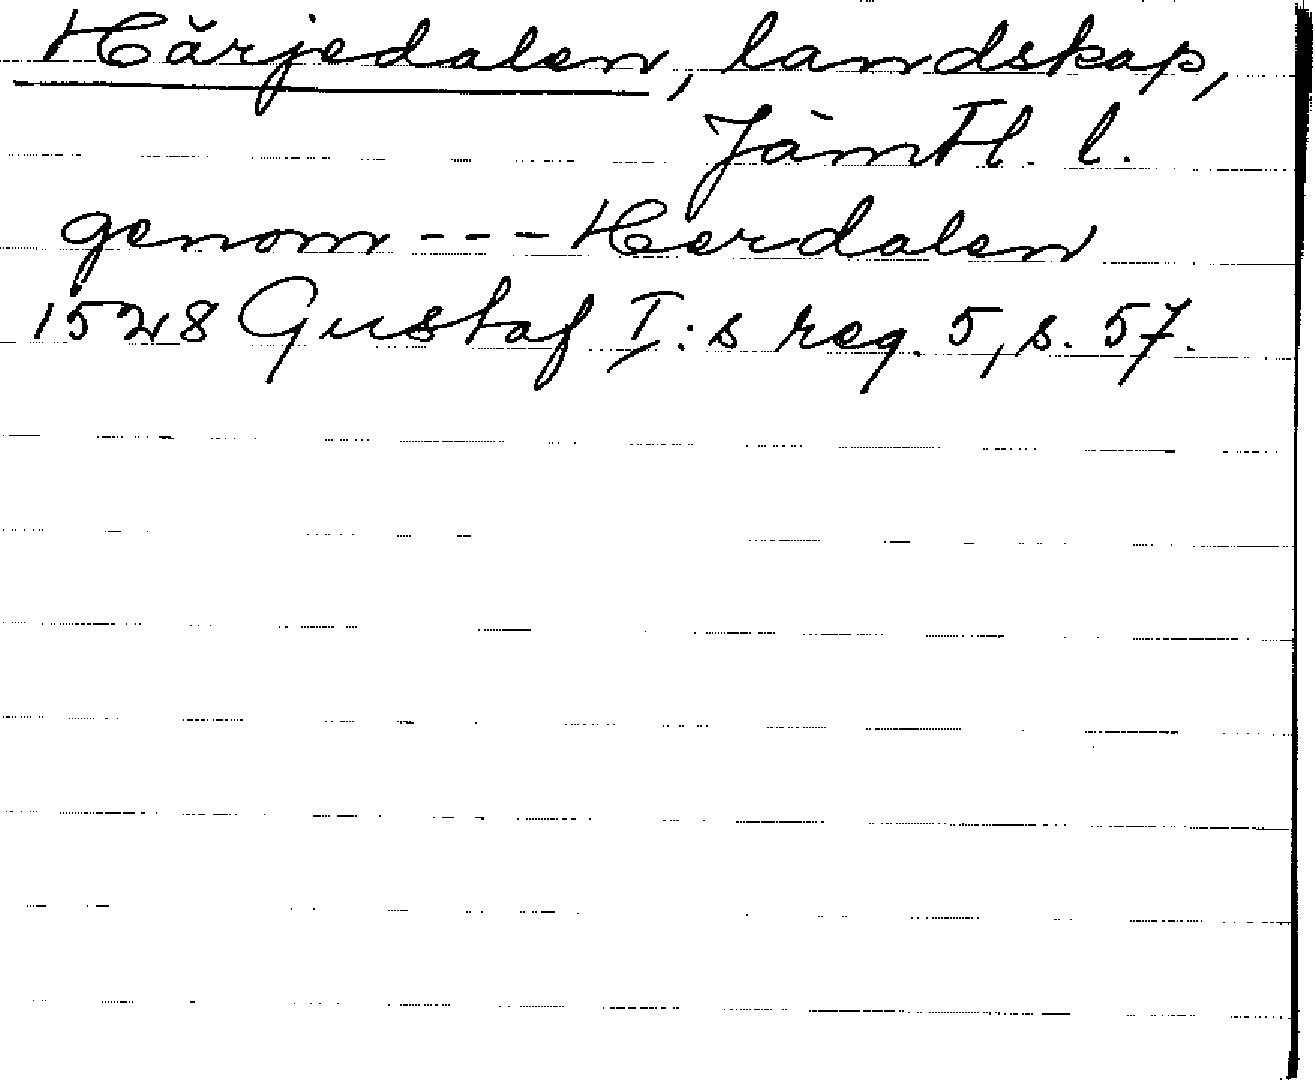 Härjedalen, landskap,
Jämtl. l.
genom --- Herdalen
1528 Gustaf I:s reg. 5, s. 57.